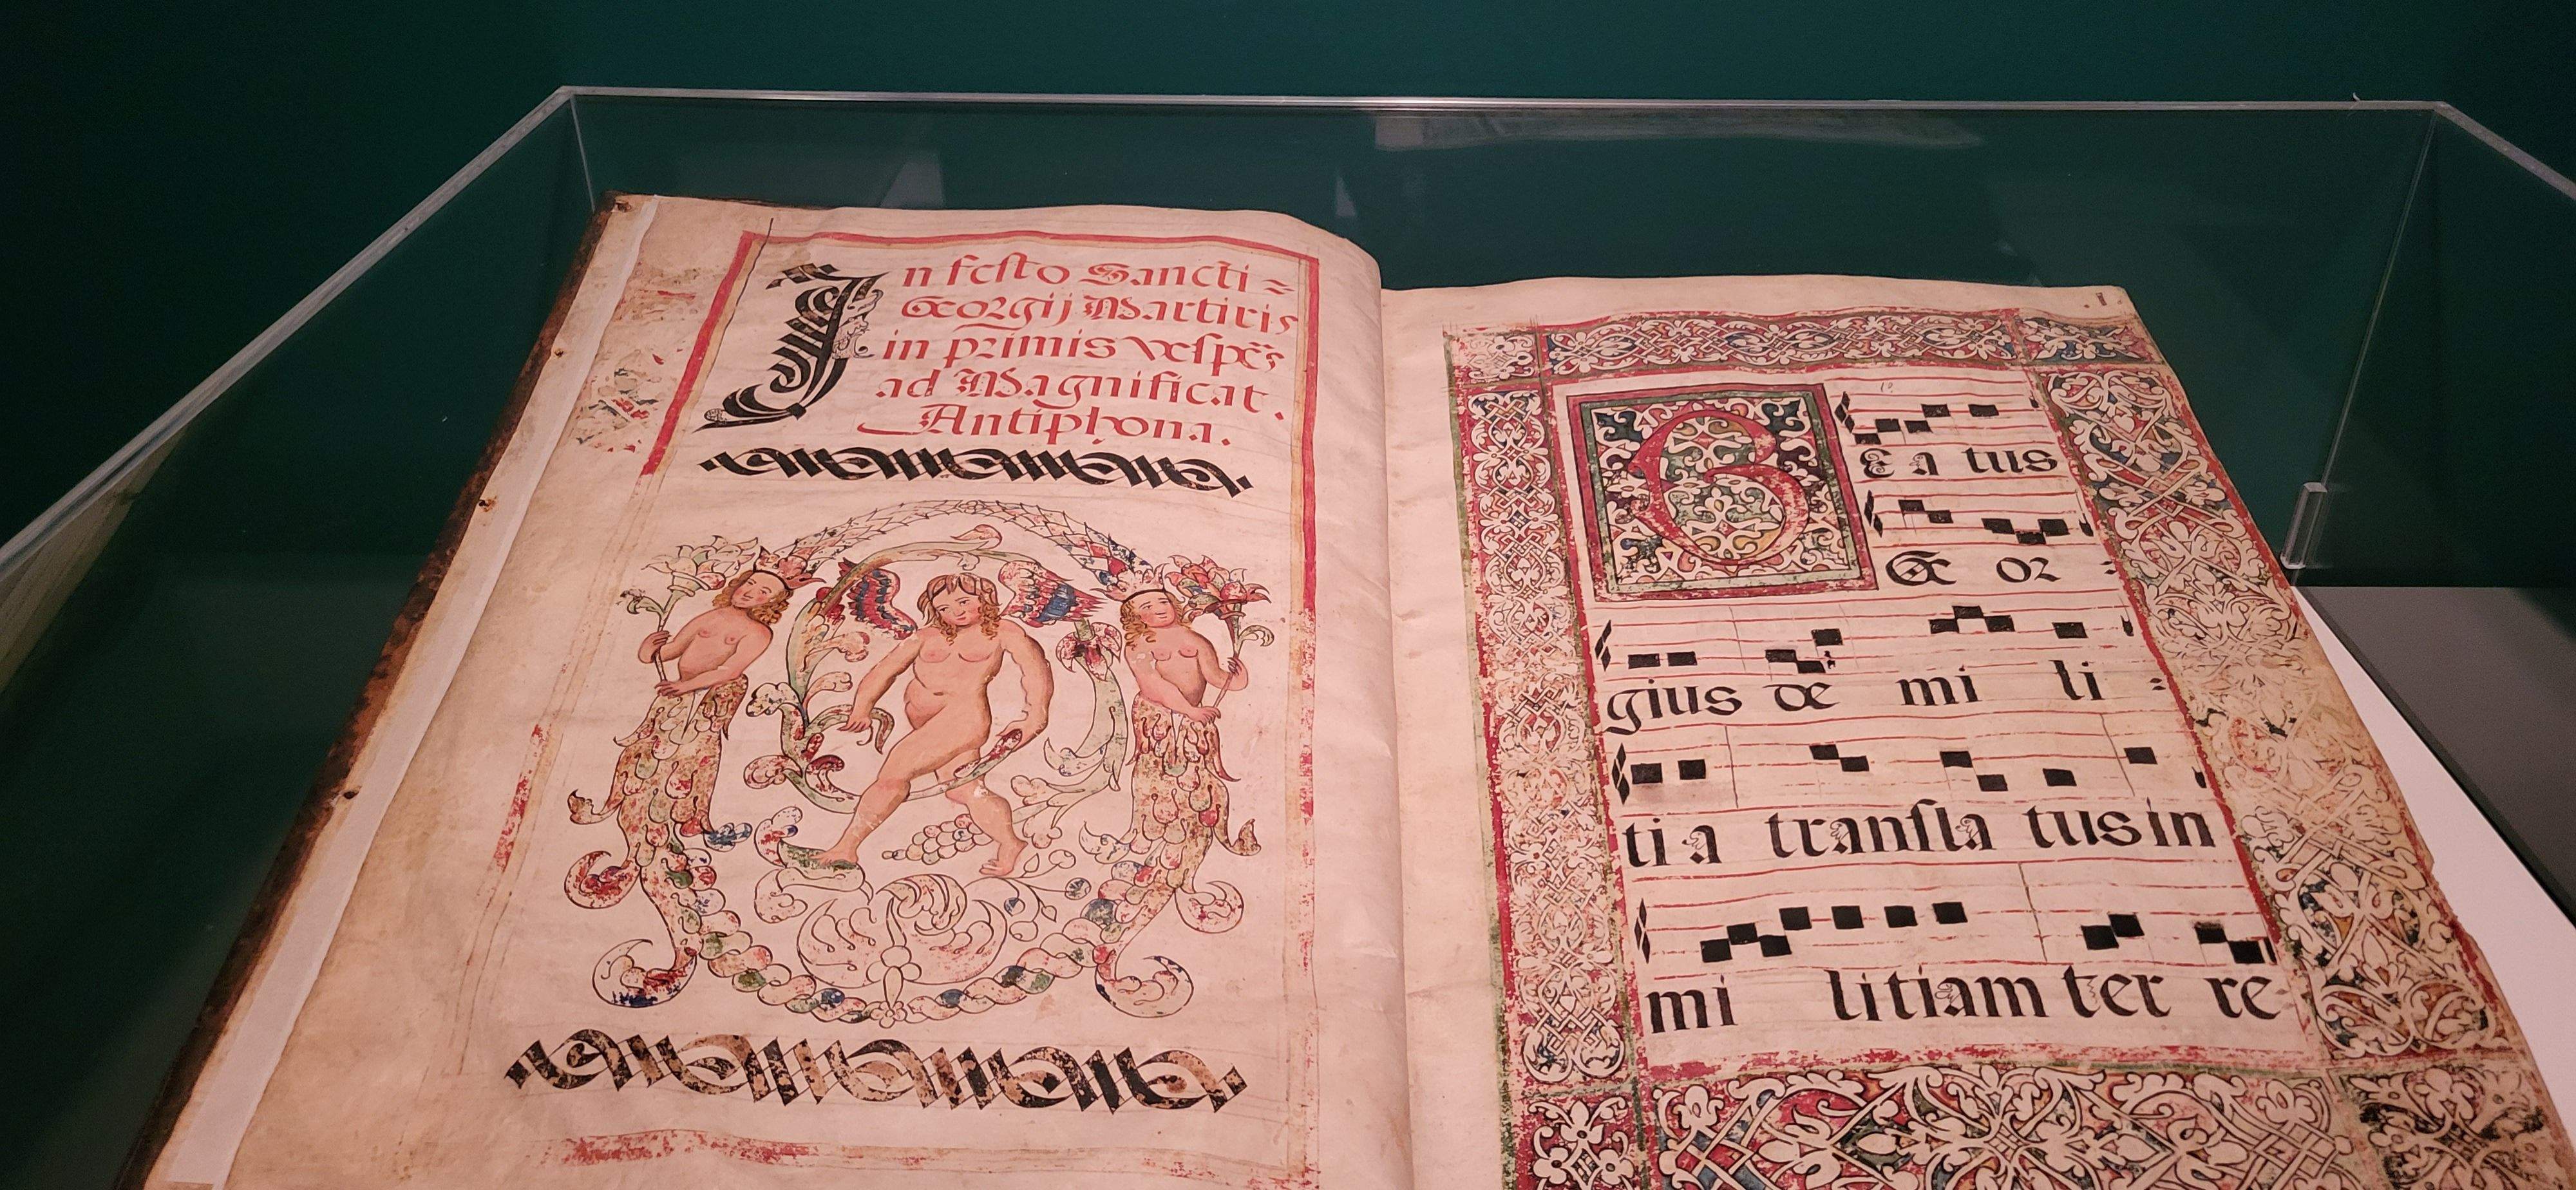 In festo Sancti =
Georgij Martiris
in primis vespeˢ
ad Magnificat.
Antiphona.
1
BEatus
Geor=
gius de mili=
tia translatus in
militiam terre